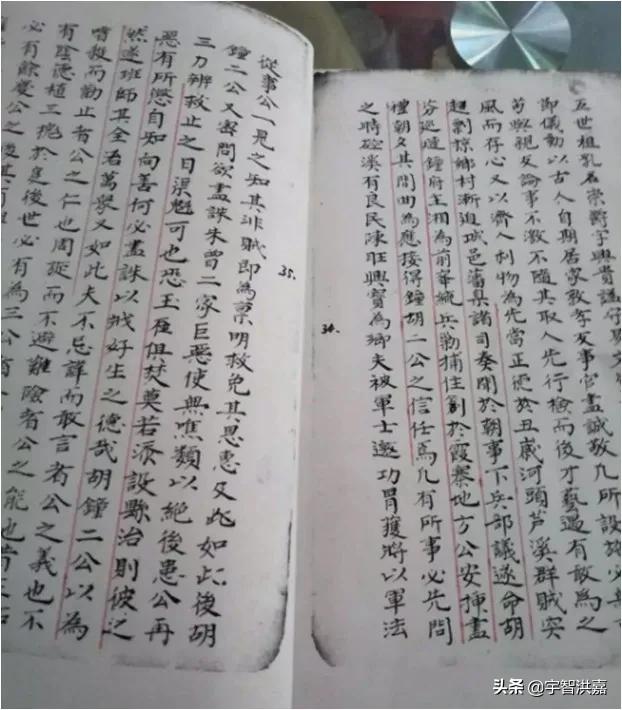 五世祖乳名崇爵字興貴諡守
卽儀動以古人自期居家敦孝友事官盡誠敬凡所設施必
苟與親友論事不激不隨其取人先行檢而後才藝遇有敢為之
風而存心又以濟人利物為先當正德於丑歲河頭芦溪群賊突
起剽掠鄉村漸迫城邑藩臬諸司奏聞於朝事下兵部議遂命胡
芬巡鐘府主湘為前軍統兵勦捕住劄於霞寨地方公安揷盡
禮朝夕其間曲為應接得鐘胡二公之信任焉凡有所事必先問
之時碇溪有良民陳旺興寶為鄉夫被軍士邀功冒獲將以軍法
34.
35.
從事公一見之知其非賊即為稟明救免其思惠及此如此後胡
鐘二公又密問欲盡誅朱曾二家巨惡使無噍類以絕後患公再
三力辨救止之日渠魁可也恐玉石俱焚莫若添設縣治則彼之
惡有所懲自知向善何必盡誅以戕好生之德哉胡鐘二公以為
然遂班師其全活萬眾又如此夫不忌諱而敢言者公之義也不
嗜殺而勸止者公之仁也周旋而不避難險者公之能也昔王
有陰德植三槐於庭後世必有為三公者
必有餘慶公之後其有
头条 @宇智洪嘉